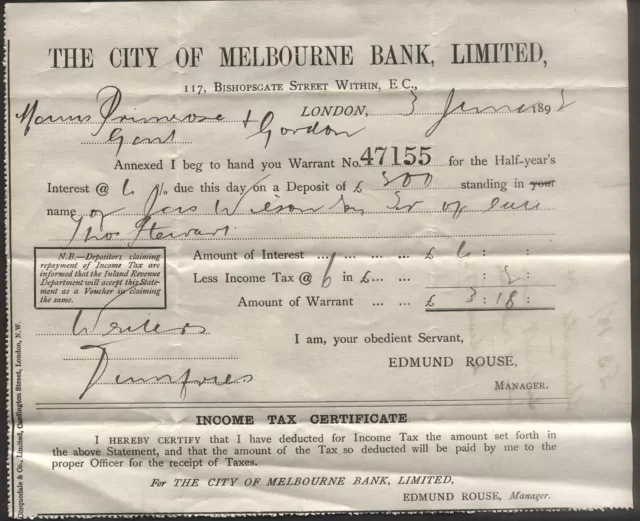 THE CITY OF MELBOURNE BANK, LIMITED,
117, BISHOPSGATE STREET WITHIN, E.C.,
Primrose & LONDON, 3 June 1892
Gordon
Annexed I beg to hand you Warrant No. 47155 for the Half-year's
Interest @ due this day on a Deposit of £ 300 standing in your
name of Wilson of
Thos Stewart
N.B.—Depositors claiming
repayment of Income Tax are
informed that the Inland Revenue
Department will accept this State-
ment as a Voucher in claiming
the same.
Amount of Interest ... ... £
Less Income Tax @ 6 in £... ... : 2 :
Amount of Warrant ... ... £ 3 : 18 :
Writers
Dumfries
I am, your obedient Servant,
EDMUND ROUSE,
MANAGER.
INCOME TAX CERTIFICATE.
I HEREBY CERTIFY that I have deducted for Income Tax the amount set forth in
the above Statement, and that the amount of the Tax so deducted will be paid by me to the
proper Officer for the receipt of Taxes.
For THE CITY OF MELBOURNE BANK, LIMITED,
EDMUND ROUSE, Manager.
Corquodale & Co., Limited, Cardington Street, London, N.W.